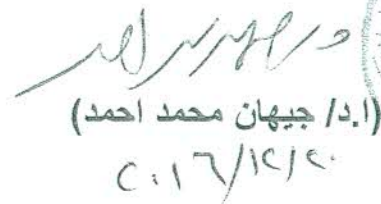 (ا.د/ جيهان محمد احمد)
٢٠١٦/١٢/٢٠